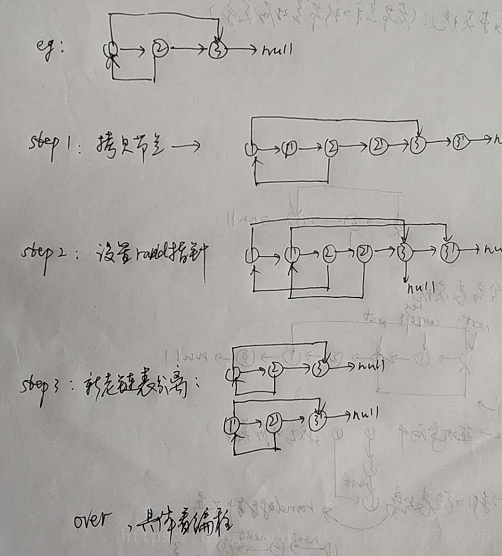 eg: 1 → 2 → 3 → null
step 1: 拷贝节点 → 1 → 1' → 2 → 2' → 3 → 3' → nu
step 2: 设置rand指针 1 → 1' → 2 → 2' → 3 → 3' → nu
null
step 3: 新老链表分离: 1 → 2 → 3 → null
1' → 2' → 3' → null
over, 具体看编程